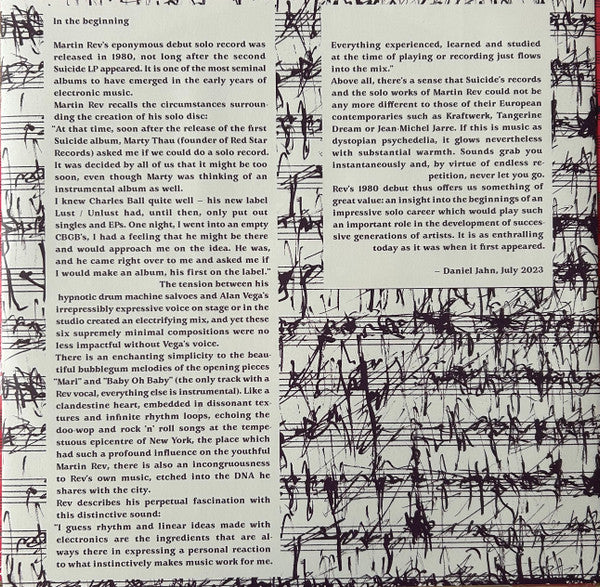 In the beginning
Martin Rev's eponymous debut solo record was
released in 1980, not long after the second
Suicide LP appeared. It is one of the most seminal
albums to have emerged in the early years of
electronic music.
Martin Rev recalls the circumstances surroun-
ding the creation of his solo disc:
"At that time, soon after the release of the first
Suicide album, Marty Thau (founder of Red Star
Records) asked me if we could do a solo record.
It was decided by all of us that it might be too
soon, even though Marty was thinking of an
instrumental album as well.
I knew Charles Ball quite well – his new label
Lust / Unlust had, until then, only put out
singles and EPs. One night, I went into an empty
CBGB's, I had a feeling that he might be there
and would approach me on the idea. He was,
and he came right over to me and asked me if
I would make an album, his first on the label."
The tension between his
hypnotic drum machine salvoes and Alan Vega's
irrepressibly expressive voice on stage or in the
studio created an electrifying mix, and yet these
six supremely minimal compositions were no
less impactful without Vega's voice.
There is an enchanting simplicity to the beau-
tiful bubblegum melodies of the opening pieces
"Mari" and "Baby Oh Baby" (the only track with a
Rev vocal, everything else is instrumental). Like a
clandestine heart, embedded in dissonant tex
tures and infinite rhythm loops, echoing the
doo-wop and rock 'n' roll songs at the tempe
stuous epicentre of New York, the place which
had such a profound influence on the youthful
Martin Rev, there is also an incongruousness
to Rev's own music, etched into the DNA he
shares with the city.
Rev describes his perpetual fascination with
this distinctive sound:
"I guess rhythm and linear ideas made with
electronics are the ingredients that are al-
ways there in expressing a personal reaction
to what instinctively makes music work for me.
Everything experienced, learned and studied
at the time of playing or recording just flows
into the mix."
Above all, there's a sense that Suicide's records
and the solo works of Martin Rev could not be
any more different to those of their European
contemporaries such as Kraftwerk, Tangerine
Dream or Jean-Michel Jarre. If this is music as
dystopian psychedelia, it glows nevertheless
with substantial warmth. Sounds grab you
instantaneously and, by virtue of endless re-
petition, never let you go.
Rev's 1980 debut thus offers us something of
great value: an insight into the beginnings of an
impressive solo career which would play such
an important role in the development of succes-
sive generations of artists. It is as enthralling
today as it was when it first appeared.
– Daniel Jahn, July 2023